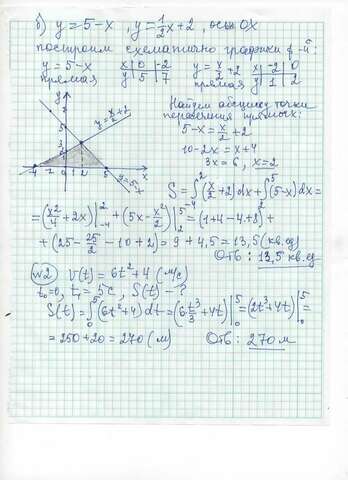 б) y = 5-x , y = 1/2 x + 2 , осью OX
построим схематично графики ф-й:
y = 5-x
прямая
x | 0 | -2
y | 5 | 7
y = x/2 + 2
прямая
x | -2 | 0
y | 1 | 2
Найдем абсциссу точки
пересечения прямых:
5-x = x/2 + 2
10-2x = x+4
3x = 6, x = 2
y
y = x/2 + 2
y = 5-x
-4 -2 0 2 5 x
S = ∫_{-4}^{2} (x/2 + 2) dx + ∫_{2}^{5} (5-x) dx =
= (x²/4 + 2x) |_{-4}^{2} + (5x - x²/2) |_{2}^{5} = (1+4-4+8) +
+ (25 - 25/2 - 10 + 2) = 9 + 4,5 = 13,5 (кв.ед)
Отв: 13,5 кв.ед
№2 V(t) = 6t² + 4 (м/с)
t₀=0, t₁ = 5с , S(t) - ?
S(t) = ∫_{0}^{5} (6t² + 4) dt = (6 t³/3 + 4t) |_{0}^{5} = (2t³ + 4t) |_{0}^{5} =
= 250 + 20 = 270 (м) Отв: 270 м